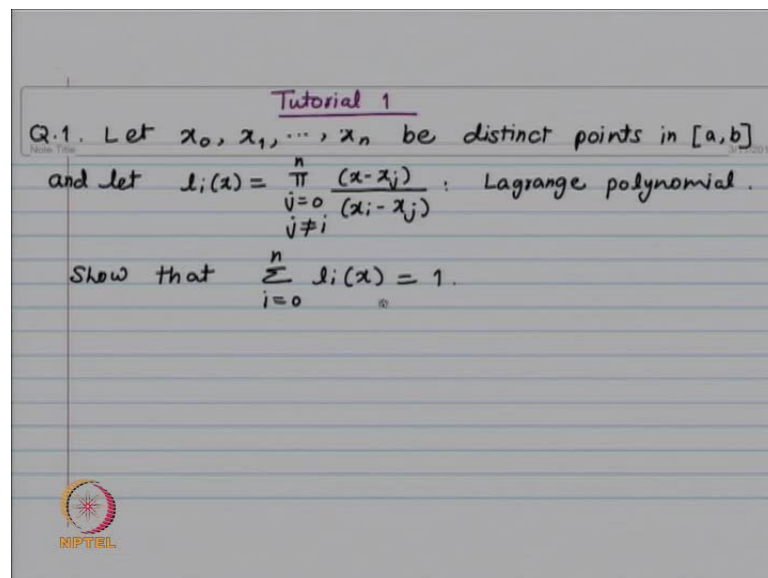 Tutorial 1
Q.1. Let x₀, x₁, ⋯, xₙ be distinct points in [a,b]
Note Title
and let lᵢ(x) = ∏_{j=0, j≠i}^{n} (x-xⱼ)/(xᵢ-xⱼ) : Lagrange polynomial.
Show that ∑_{i=0}^{n} lᵢ(x) = 1.
NPTEL